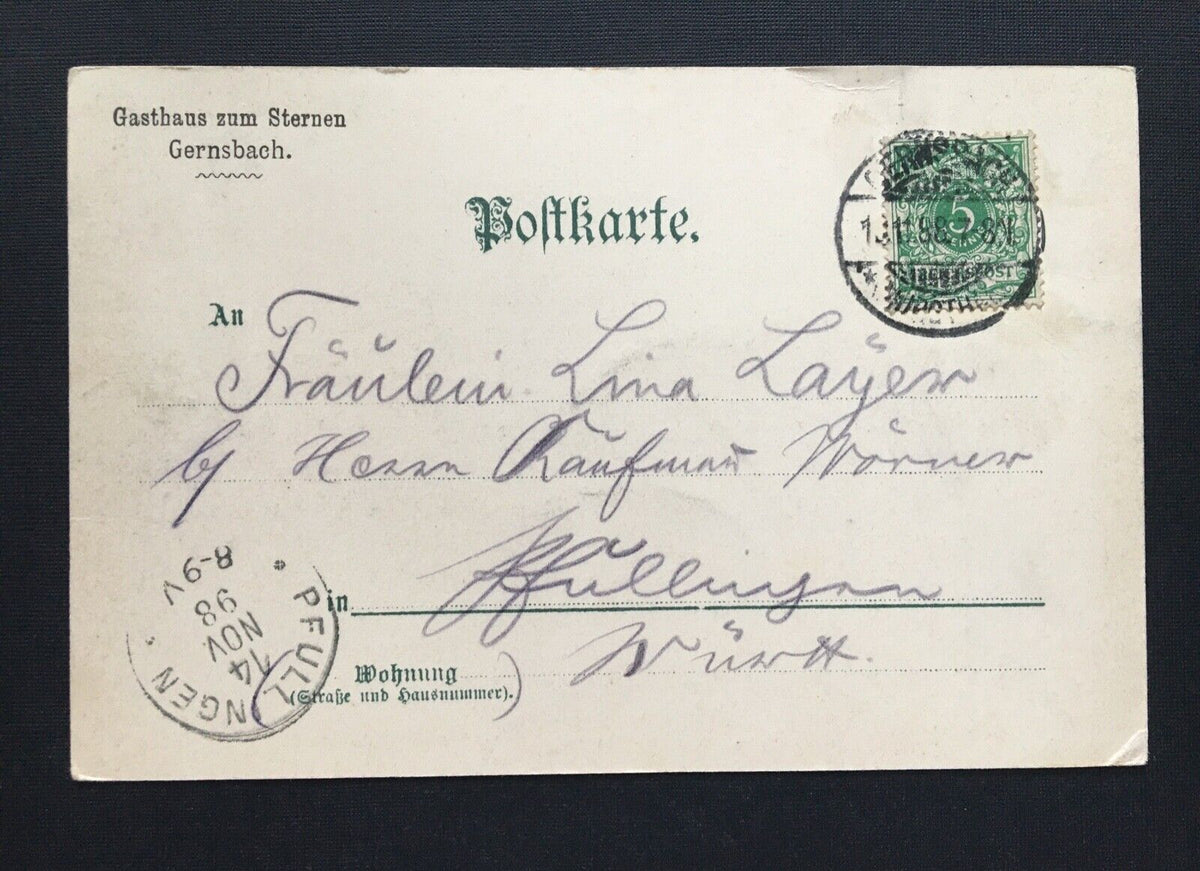 Gasthaus zum Sternen
Gernsbach.
Postkarte.
GERNSBACH
13.11.98.7-8N.
5
REICHSPOST
An
Fräulein Lina Layer
b/ Herrn Kaufman Wörner
in Pfullingen
Württ.
Wohnung
(Straße und Hausnummer).
PFULLINGEN
14
NOV
98
8-9V